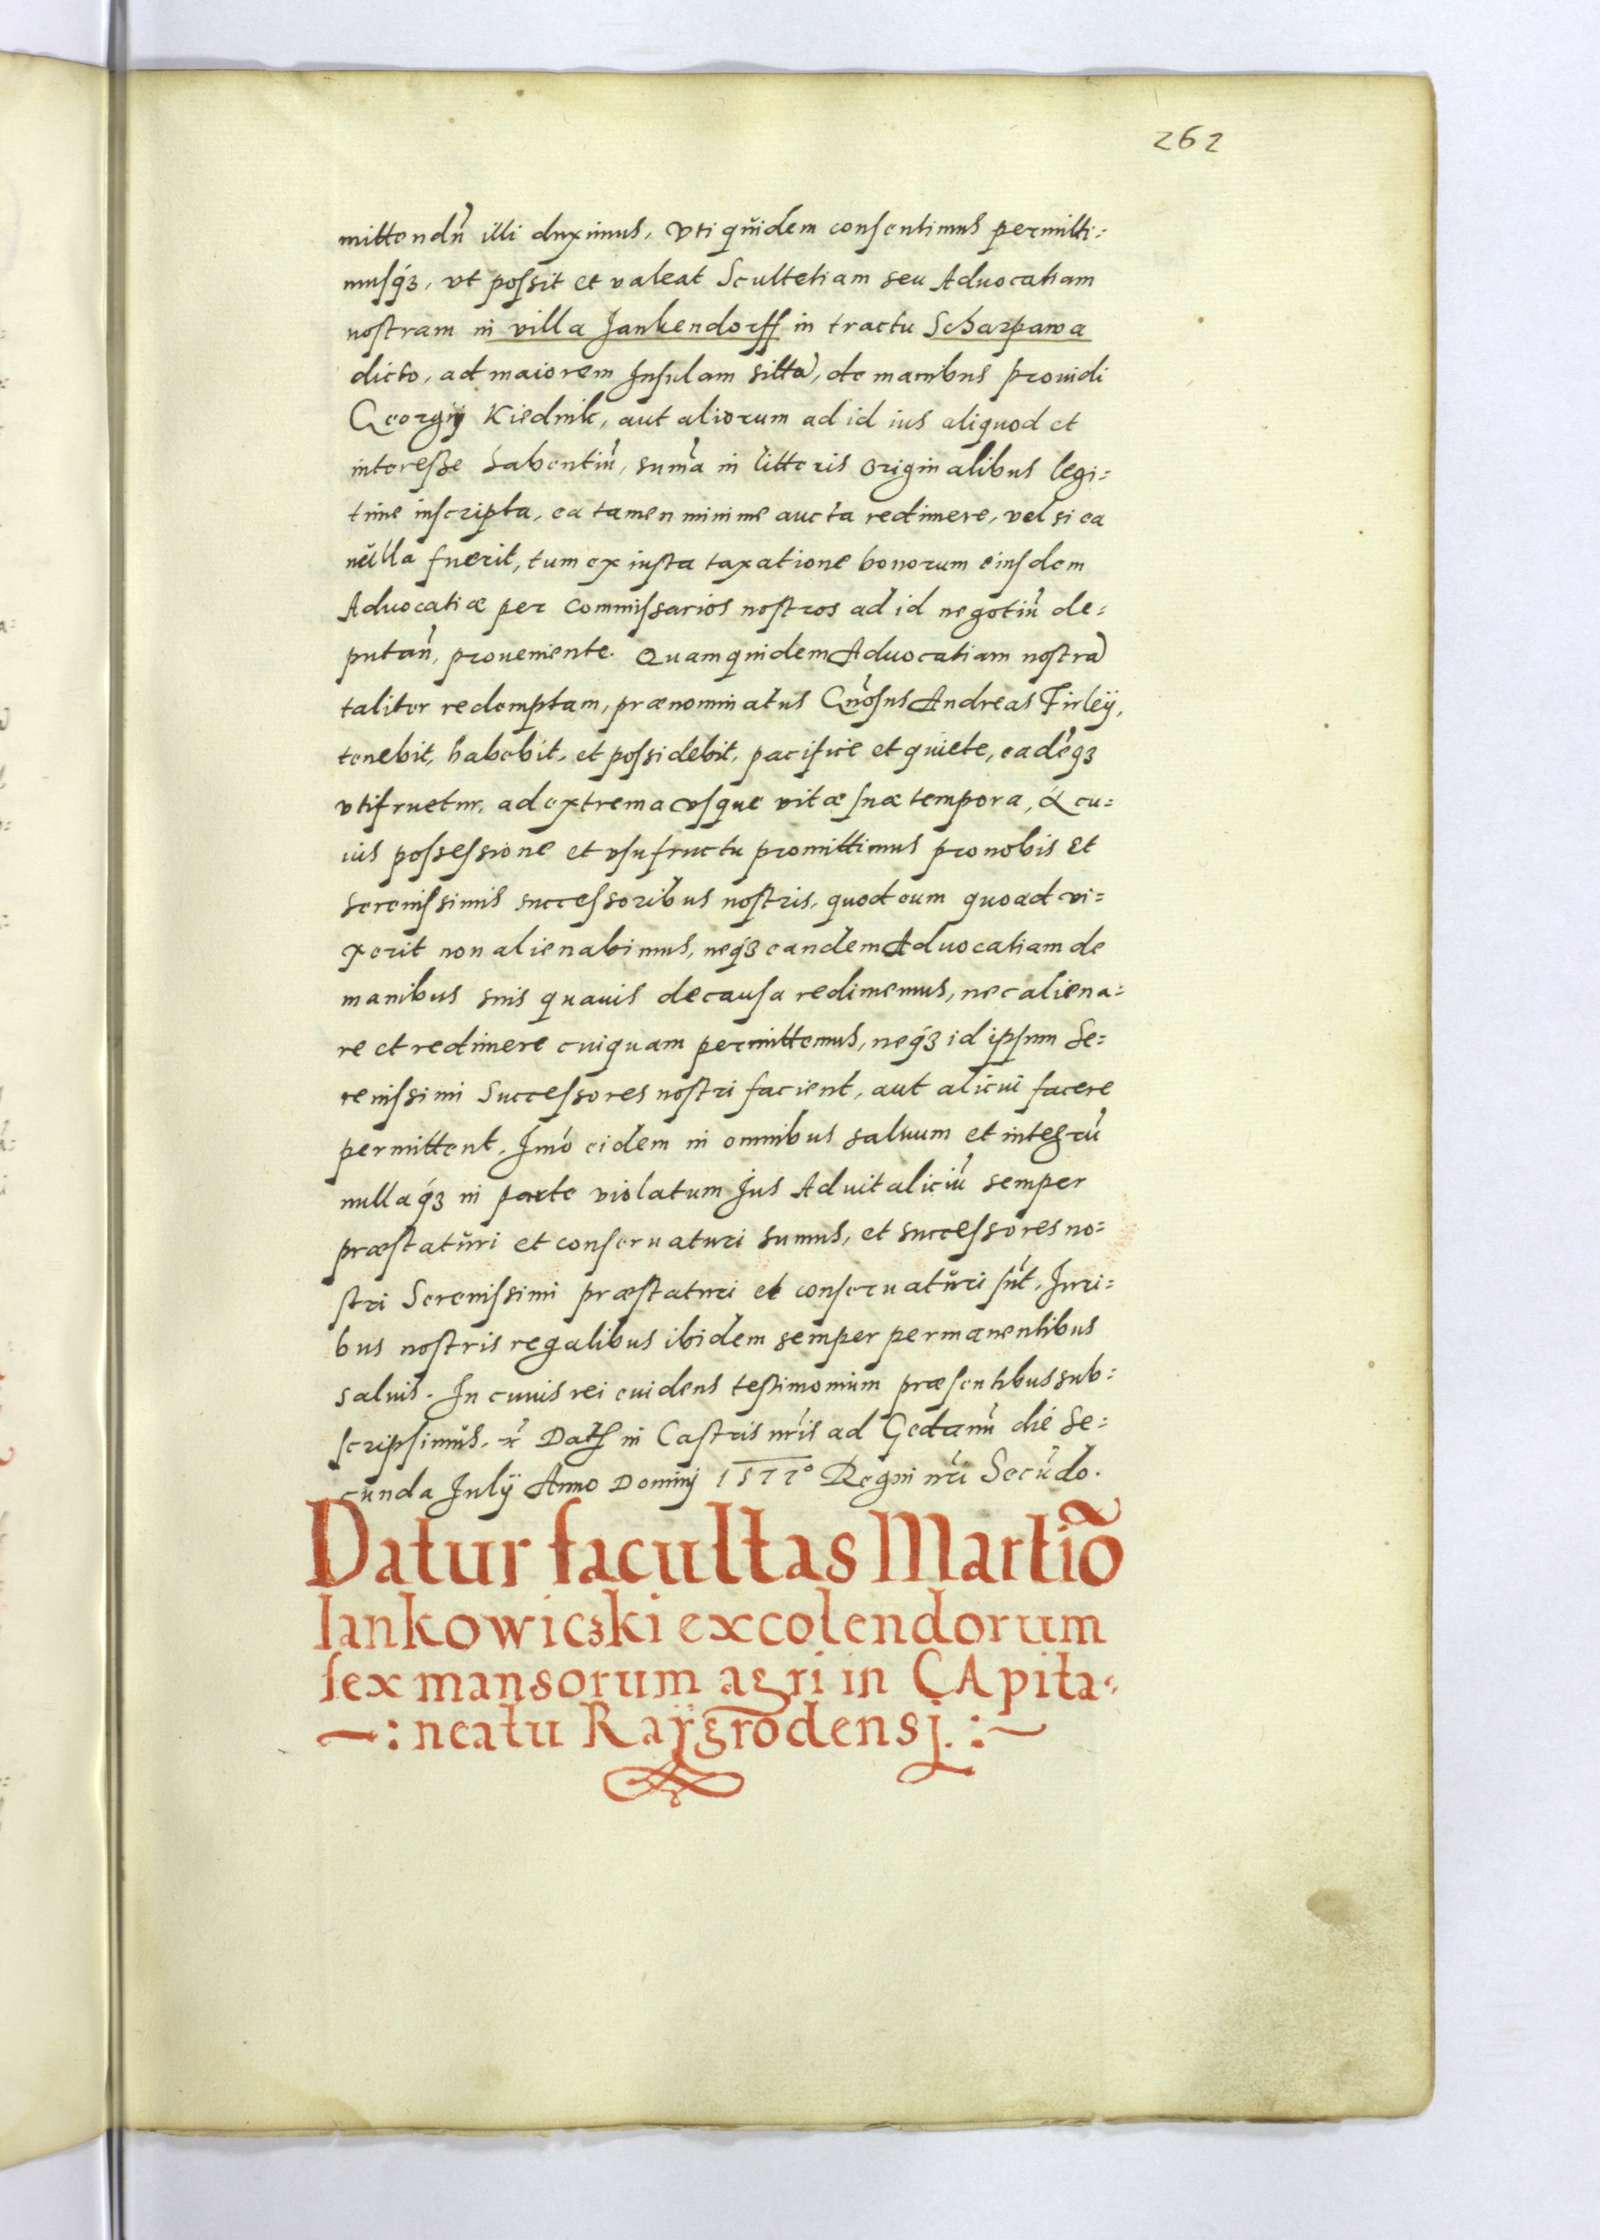 262
mittendũ illi duximus, vti quidem consentimus permitti:
musq́ꝫ, vt possit et valeat Scultetiam seu Advocatiam
nostram in villa Jankendorff in tractu Scharpawa
dicto, ad maiorem Insulam sittã, de manibus prouidi
Georgij Kiednik, aut aliorum ad id ius aliquod et
interesse habentiũ, sum̃a in litteris originalibus legi:
time inscripta, ea tamen minime aucta redimere, vel si ea
nŭlla fuerit, tum ex iusta taxatione bonorum eiusdem
Advocatiæ per commissarios nostros ad id negotiũ de:
putañ, proueniente. Quamquidem Advocatiam nostrã
taliter redemptam, prænominatus Gñosus Andreas Firleÿ,
tenebit, habebit, et possidebit, pacifice et quiete, eadẽqꝫ
vtifruetur, ad extrema vsque vitæ suæ tempora, á cu:
ius possessione et vsufructu promittimus pro nobis et
serenissimis successoribus nostris, quod eum quoad vi:
xerit non alienabimus, neq́ꝫ eandem Advocatiam de
manibus suis quauis de causa redimemus, nec aliena:
re et redimere cuiquam permittemus, neq́ꝫ id ipsum Se:
renissimi Successores nostri facient, aut alicui facere
permittent. Imó eidem in omnibus saluum et integrũ
nullaq́ꝫ in parte violatum Jus Aduitaliciũ semper
præstatŭri et conseruaturi sumus, et successores no:
stri Serenissimi præstaturi et conseruatŭri sũt. Juri:
bus nostris regalibus ibidem semper permanentibus
saluis. In cuius rei euidens testimonium præsentibus sub:
scripsimŭs. Datꝭ in Castris nr̃is ad Gedanũ die Se:
cunda Julÿ Anno Dominj 1577º Regni nr̃i Secũdo.
Datur facultas Martiõ
Iankowicꝫki excolendorum
sex mansorum agri in CApita:
—: neatu Raÿgrodensj. :~